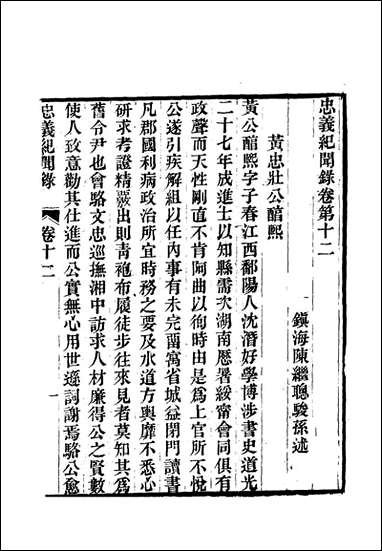 忠義紀聞錄卷第十二
鎮海陳繼聰駿孫述
黃忠壯公醕熙
黃公醕熙字子春江西鄱陽人沈潛好學博涉書史道光
二十七年成進士以知縣需次湖南歷署綏甯會同俱有
政聲而天性剛直不肯阿曲以徇時由是爲上官所不悅
公遂引疾解組以任內事有未完留寓省城益閉門讀書
凡郡國利病政治所宜時務之要及水道方輿靡不悉心
研求考證精覈出則青袍布履徒步往來見者莫知其爲
舊令尹也會駱文忠巡撫湘中訪求人材廉得公之賢數
使人致意勸其仕進而公實無心用世遜詞謝焉駱公愈
忠義紀聞錄
卷十二
一